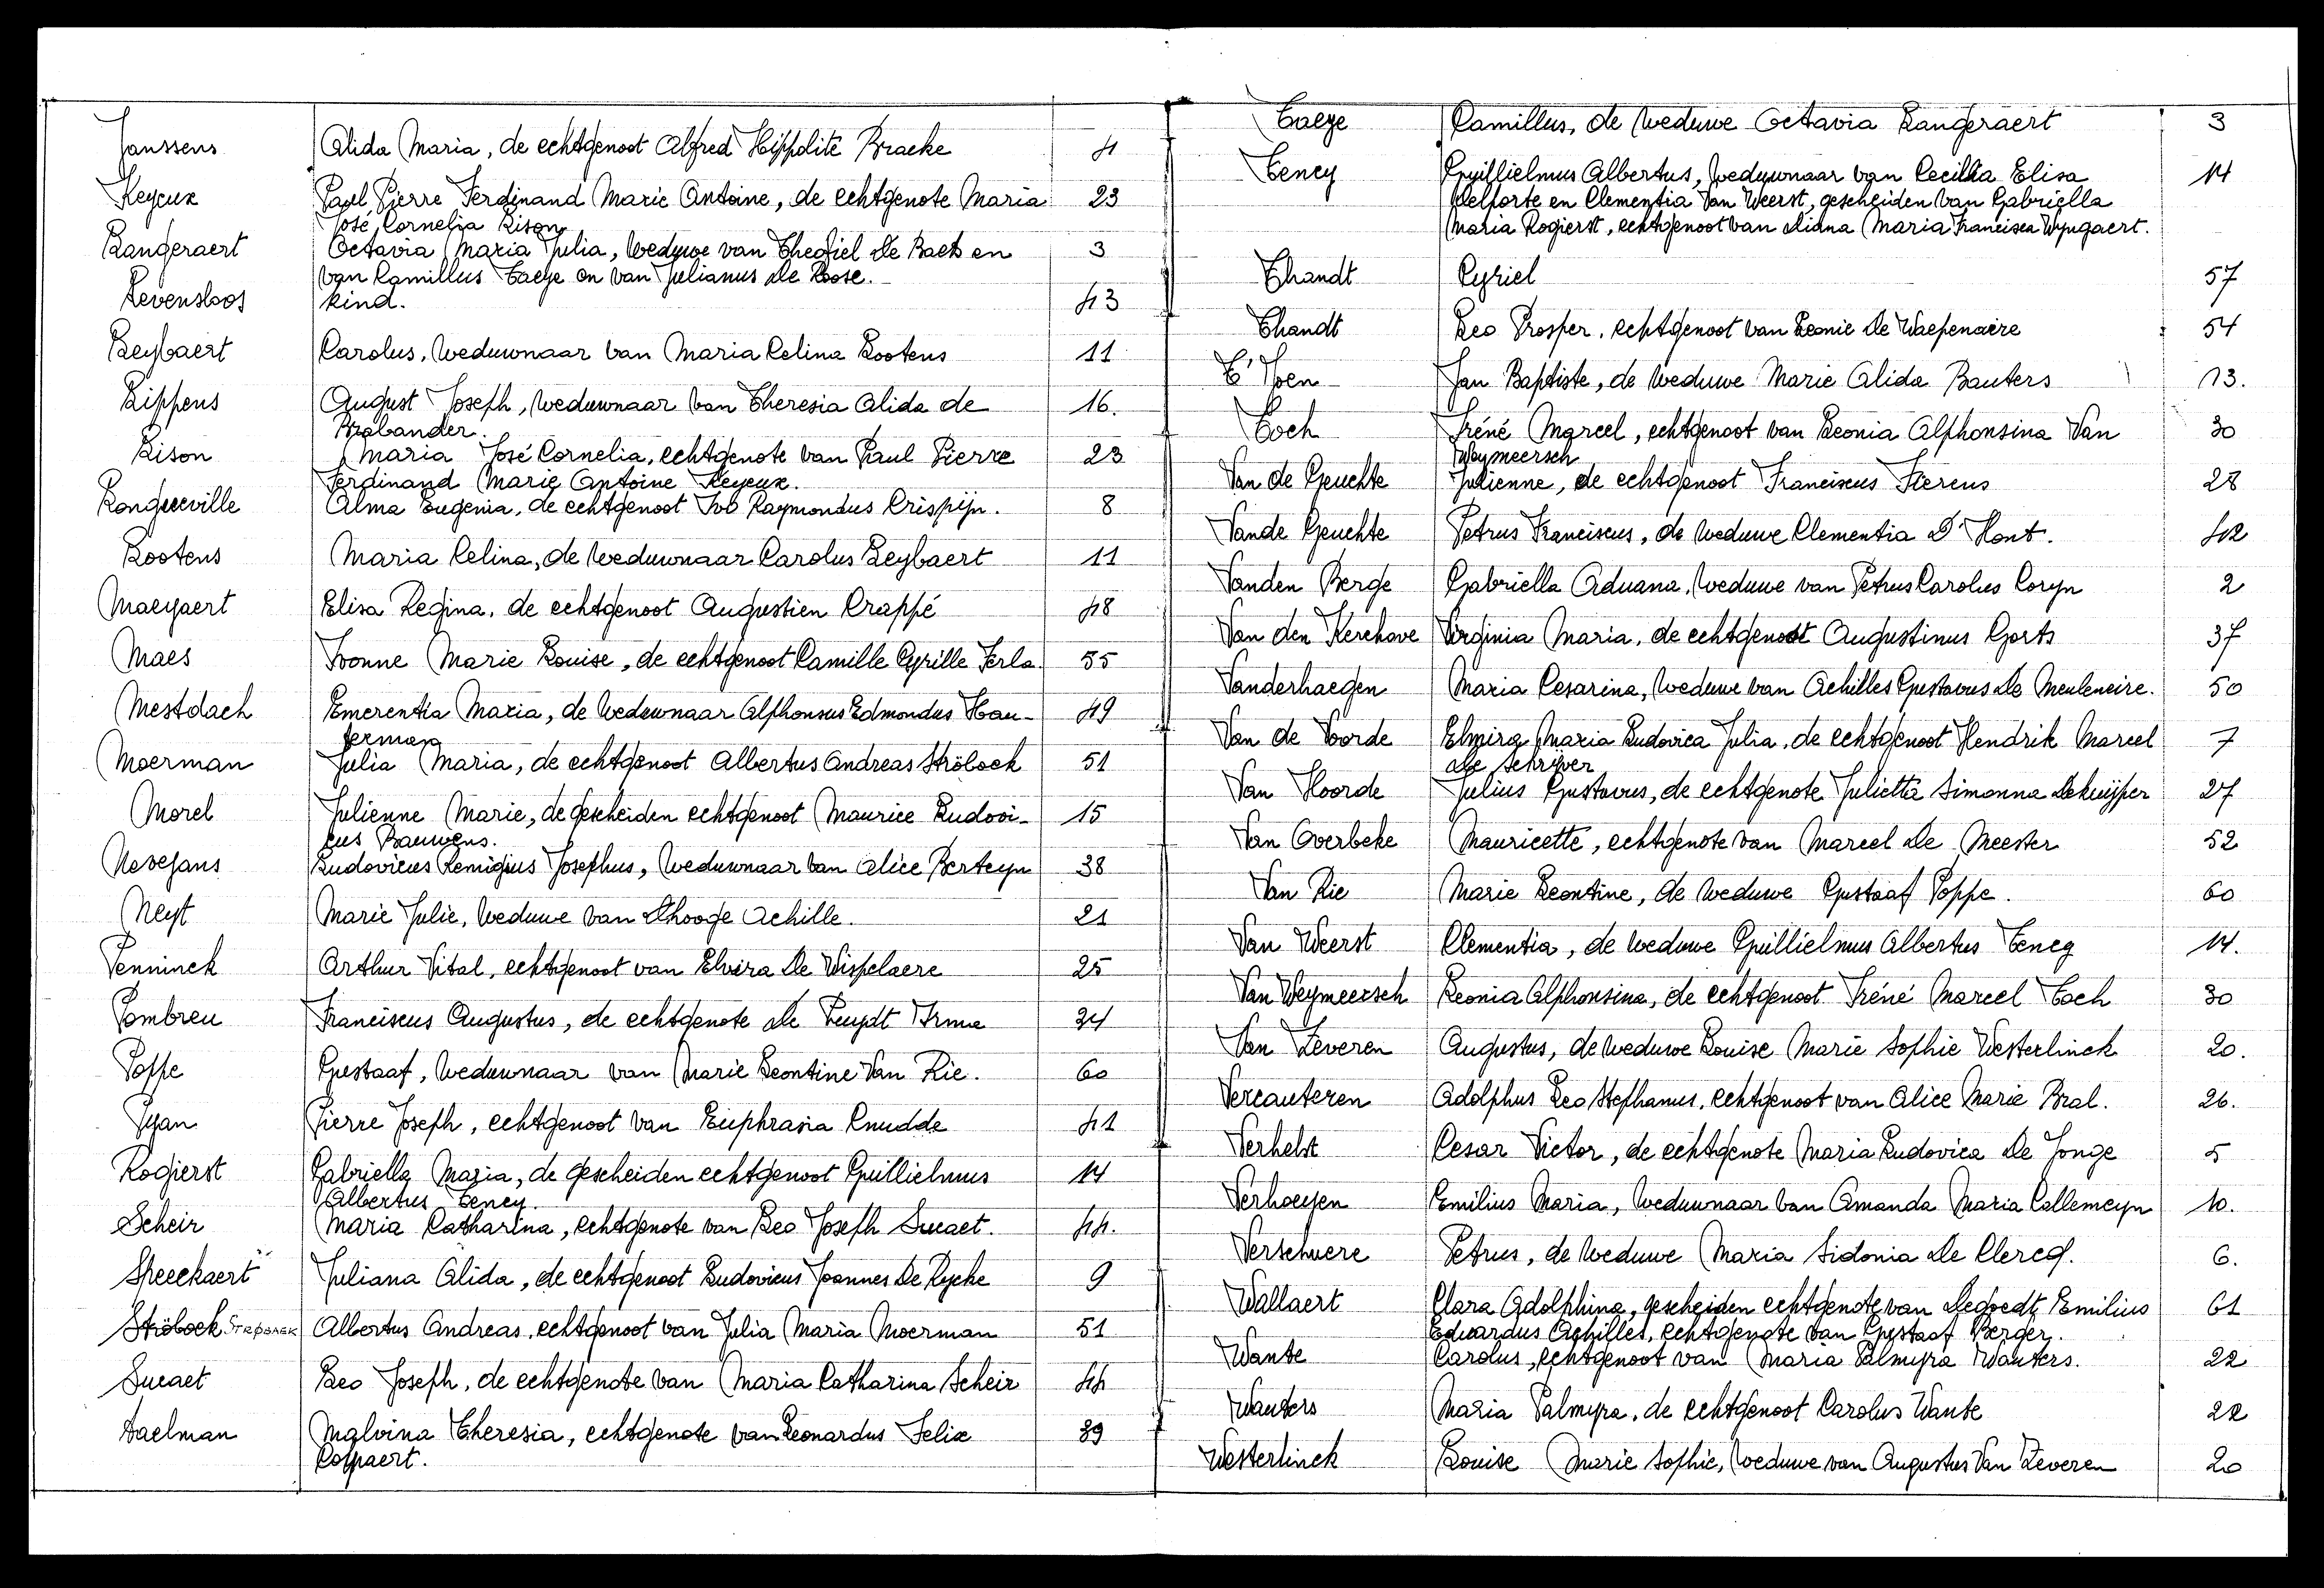 Janssens Alida Maria, de echtgenoot Alfred Hippolite Bracke 4
Keyeux Paul Pierre Ferdinand Marie Antoine, de echtgenote Maria 23
José Cornelia Lison
Langeraert Octavia Maria Julia, weduwe van Theofiel De Baets en 3
van Camillus Taeye en van Julianus De Roose.
Levensloos kind. 43
Leybaert Carolus, weduwnaar van Maria Celina Lootens 11
Lippens August Joseph, weduwnaar van Theresia Alida de 16.
Brabander.
Lison Maria José Cornelia, echtgenote van Paul Pierre 23
Ferdinand Marie Antoine Keyeux.
Longueville Alma Eugenia, de echtgenoot Ivo Raymondus Crispijn. 8
Lootens Maria Celina, de weduwnaar Carolus Leybaert 11
Maeyaert Elisa Regina, de echtgenoot Augustien Crappé 48
Maes Ivonne Marie Louise, de echtgenoot Camille Cyrille Ferla. 55
Mestdach Emerentia Maria, de weduwnaar Alphonsus Edmondus Hau- 49
terman
Moerman Julia Maria, de echtgenoot Albertus Andreas Ströbaek 51
Morel Julienne Marie, de gescheiden echtgenoot Maurice Ludovi- 15
cus Bauwens.
Nevejans Ludovicus Remigius Josephus, weduwnaar van Alice Berteyn 38
Neyt Marie Julie, weduwe van Dhooge Achille. 21
Penninck Arthur Vital, echtgenoot van Elvira De Wispelaere 25
Pombreu Franciscus Augustus, de echtgenote De Peuydt Irma 34
Poppe Gustaaf, weduwnaar van Marie Leontine Van Rie. 60
Pyan Pierre Joseph, echtgenoot van Euphrasia Knudde 41
Rogierst Gabriella Maria, de gescheiden echtgenoot Guillielmus 14
Albertus Teney.
Scheir Maria Catharina, echtgenote van Leo Joseph Sucaet. 44.
Speeckaert Juliana Alida, de echtgenoot Ludovicus Joannes De Rycke 9
Ströbaek STRØBAEK Albertus Andreas, echtgenoot van Julia Maria Moerman 51
Sucaet Leo Joseph, de echtgenote van Maria Catharina Scheir 44
Taelman Malvina Theresia, echtgenote van Leonardus Felix 39
Colpaert.
Taeye Camillus, de weduwe Octavia Langeraert 3
Teney Guillielmus Albertus, weduwnaar van Cecilia Elisa 14
Delforte en Clementia Van Weerst, gescheiden van Gabriella
Maria Rogierst, echtgenoot van Diana Maria Francisca Wyngaert.
Thandt Cyriel 57
Thandt Leo Prosper, echtgenoot van Leonie De Waepenaere 54
T'Joen Jan Baptiste, de weduwe Marie Alida Bauters 13.
Toch Iréné Marcel, echtgenoot van Leonia Alphonsina Van 30
Weymeersch
Van de Geuchte Julienne, de echtgenoot Franciscus Sterens 28
Vande Geuchte Petrus Franciscus, de weduwe Clementia D'Hont. 42
Vanden Berge Gabriella Aduana, weduwe van Petrus Carolus Coryn 2
Van den Kerchove Virginia Maria, de echtgenoot Augustinus Gorts 37
Vanderhaegen Maria Cesarina, weduwe van Achilles Gustavus De Meuleneire. 50
Van de Voorde Elmira Maria Ludovica Julia, de echtgenoot Hendrik Marcel 7
De Schrijver
Van Hoorde Julius Gustavus, de echtgenote Julietta Simonna Dekuijper 27
Van Overbeke Mauricette, echtgenote van Marcel De Meester 52
Van Rie Marie Leontine, de weduwe Gustaaf Poppe. 60
Van Weerst Clementia, de weduwe Guillielmus Albertus Teney 14.
Van Weymeersch Leonia Alphonsina, de echtgenoot Iréné Marcel Toch 30
Van Zeveren Augustus, de weduwe Louise Marie Sophie Westerlinck 20.
Vercauteren Adolphus Leo Stephanus, echtgenoot van Alice Marie Bral. 26.
Verhelst Cesar Victor, de echtgenote Maria Ludovica De Jonge 5
Verhoeyen Emilius Maria, weduwnaar van Amanda Maria Callemeyn 10.
Verschuere Petrus, de weduwe Maria Sidonia De Clercq. 6.
Wallaert Clara Adolphina, gescheiden echtgenote van Degoedt Emilius 61
Eduardus Achilles, echtgenote van Gustaaf Berger.
Wante Carolus, echtgenoot van Maria Palmyra Wauters. 22
Wauters Maria Palmyra, de echtgenoot Carolus Wante 22
Westerlinck Louise Marie Sophie, weduwe van Augustus Van Zeveren 20